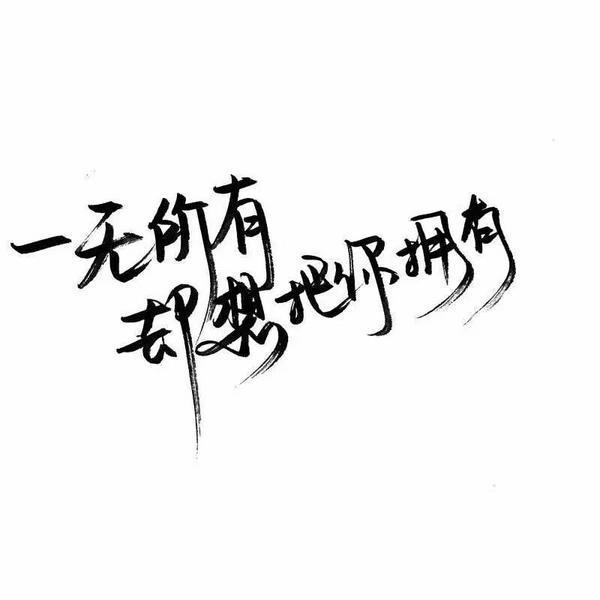 一无所有
却想把你拥有